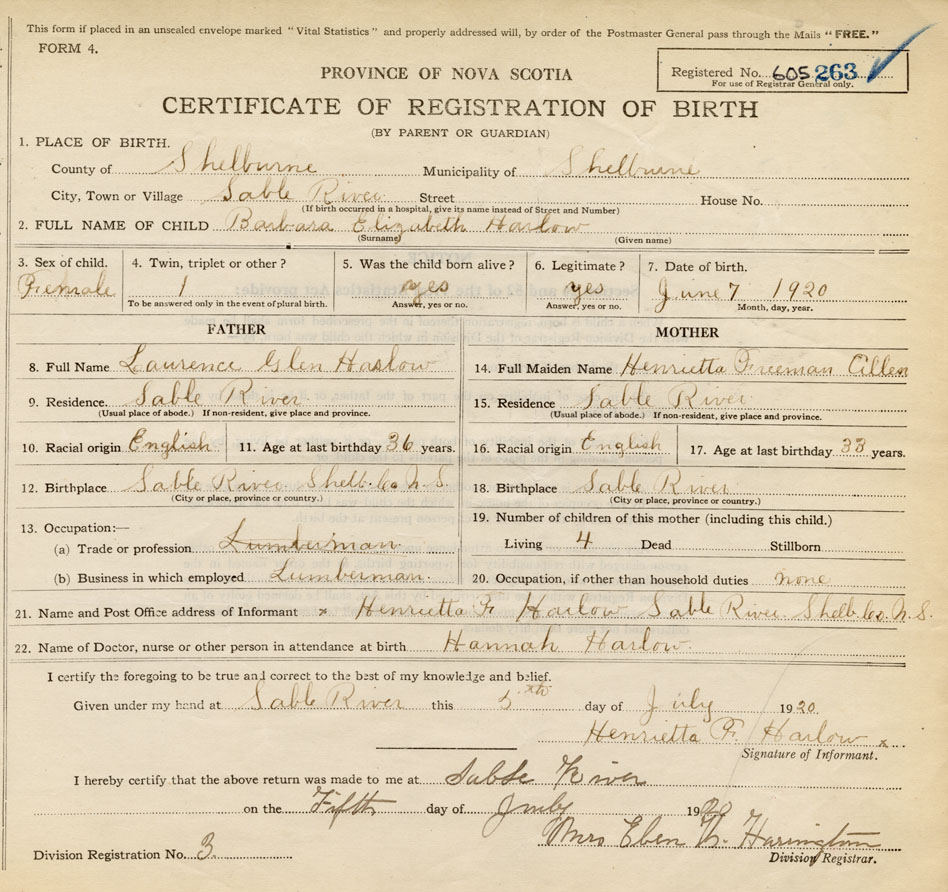 This form if placed in an unsealed envelope marked "Vital Statistics" and properly addressed will, by order of the Postmaster General pass through the Mails "FREE."
FORM 4.
PROVINCE OF NOVA SCOTIA
Registered No. 605 263
For use of Registrar General only.
CERTIFICATE OF REGISTRATION OF BIRTH
(BY PARENT OR GUARDIAN)
1. PLACE OF BIRTH.
County of Shelburne Municipality of Shelburne
City, Town or Village Sable River Street House No.
(If birth occurred in a hospital, give its name instead of Street and Number)
2. FULL NAME OF CHILD Barbara Elizabeth Harlow
(Surname) (Given name)
3. Sex of child. 4. Twin, triplet or other? 5. Was the child born alive? 6. Legitimate? 7. Date of birth.
Female 1 yes yes June 7 1920
To be answered only in the event of plural birth. Answer, yes or no. Answer, yes or no. Month, day, year.
FATHER MOTHER
8. Full Name Laurence Glen Harlow 14. Full Maiden Name Henrietta Freeman Allen
9. Residence. Sable River 15. Residence Sable River
(Usual place of abode.) If non-resident, give place and province. (Usual place of abode.) If non-resident, give place and province.
10. Racial origin English 11. Age at last birthday 36 years. 16. Racial origin English 17. Age at last birthday 33 years.
12. Birthplace Sable River Shelb. Co N.S. 18. Birthplace Sable River
(City or place, province or country.) (City or place, province or country.)
13. Occupation:— 19. Number of children of this mother (including this child.)
(a) Trade or profession Lumberman Living 4 Dead Stillborn
(b) Business in which employed Lumberman. 20. Occupation, if other than household duties none
21. Name and Post Office address of Informant x Henrietta F Harlow Sable River Shelb. Co. N.S.
22. Name of Doctor, nurse or other person in attendance at birth Hannah Harlow.
I certify the foregoing to be true and correct to the best of my knowledge and belief.
Given under my hand at Sable River this 5 day of July 1920.
Henrietta F. Harlow x
Signature of Informant.
I hereby certify that the above return was made to me at Sable River
on the Fifth day of July 1920
Mrs Eben N. Harington
Division Registrar.
Division Registration No. 3.